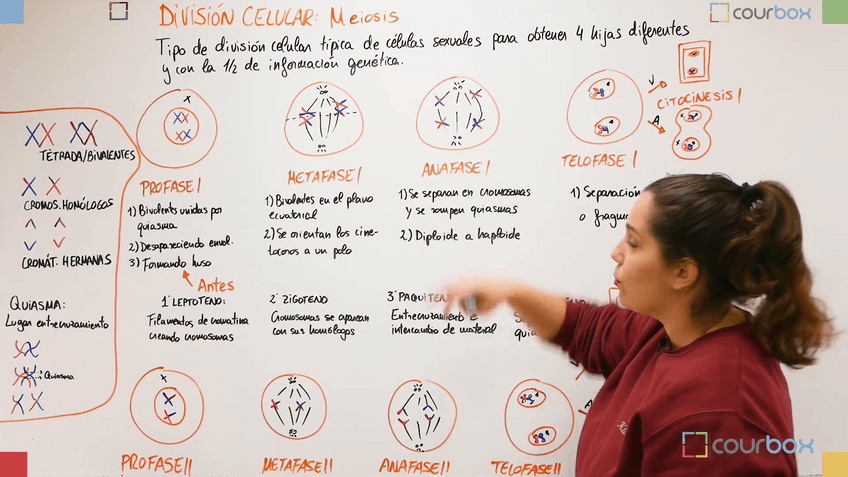 DIVISIÓN CELULAR: Meiosis
courbox
Tipo de división celular típica de células sexuales para obtener 4 hijas diferentes
y con la 1/2 de información genética.
V
CITOCINESIS I
A
TÉTRADA/BIVALENTES
CROMOS. HOMÓLOGOS
CROMÁT. HERMANAS
QUIASMA:
Lugar entrecruzamiento
Quiasma
PROFASE I
1) Bivalentes unidas por
quiasma
2) Desapareciendo envol.
3) Formando huso
Antes
METAFASE I
1) Bivalentes en el plano
ecuatorial
2) Se orientan los cine-
tocoros a un polo
ANAFASE I
1) Se separan en cromosomas
y se rompen quiasmas
2) Diploide a haploide
TELOFASE I
1) Separación
o fragm
1º LEPTOTENO:
Filamentos de cromatina
creando cromosomas
2º ZIGOTENO
Cromosomas se aparean
con sus homólogos
3º PAQUITEN
Entrecruzamiento e
intercambio de material
quia
PROFASE II
METAFASE II
ANAFASE II
TELOFASE II
courbox